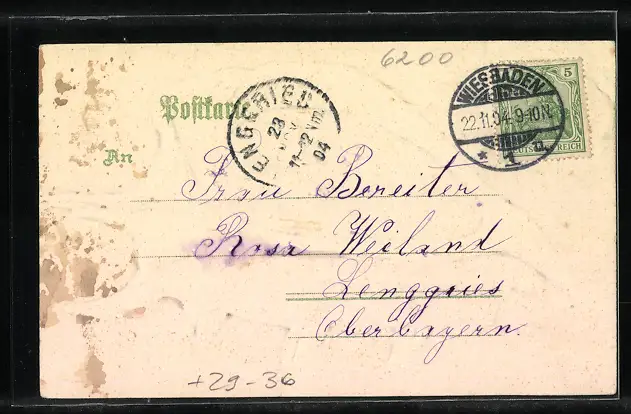 6200
Postkarte
WIESBADEN
22.11.04. 9-10N.
1
5
REICH
ENGGRIES
23
NOV
04
An
Frau Bereiter
Rosa Weiland
Lenggries
Oberbayern.
+29-36